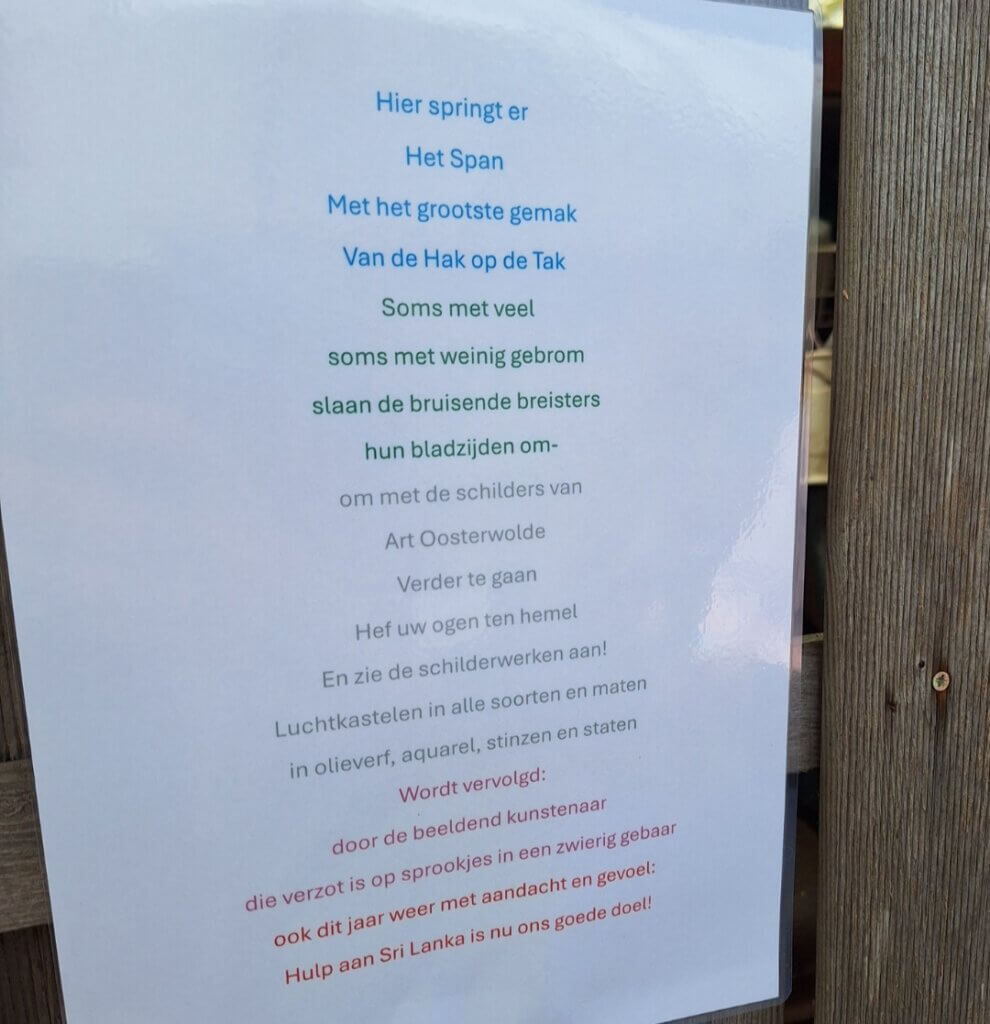 Hier springt er
Het Span
Met het grootste gemak
Van de Hak op de Tak
Soms met veel
soms met weinig gebrom
slaan de bruisende breisters
hun bladzijden om-
om met de schilders van
Art Oosterwolde
Verder te gaan
Hef uw ogen ten hemel
En zie de schilderwerken aan!
Luchtkastelen in alle soorten en maten
in olieverf, aquarel, stinzen en staten
Wordt vervolgd:
door de beeldend kunstenaar
die verzot is op sprookjes in een zwierig gebaar
ook dit jaar weer met aandacht en gevoel:
Hulp aan Sri Lanka is nu ons goede doel!